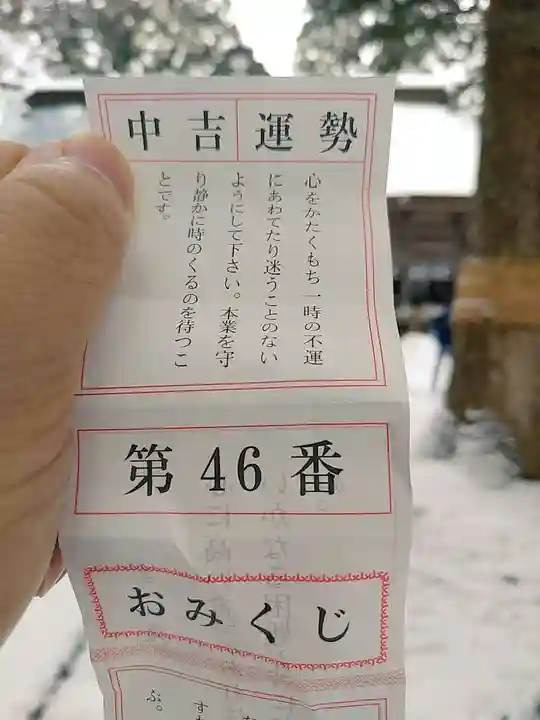 中吉 運勢
心をかたくもち一時の不運
にあわてたり迷うことのない
ようにして下さい。本業を守
り静かに時のくるのを待つこ
とです。
第46番
おみくじ
ぶ。